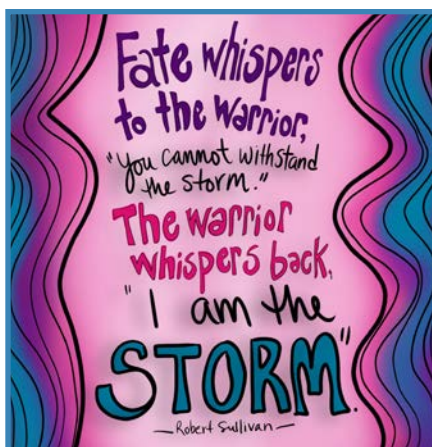 Fate whispers
to the warrior,
"you cannot withstand
the storm."
The warrior
whispers back,
"I am the
STORM".
—Robert Sullivan—